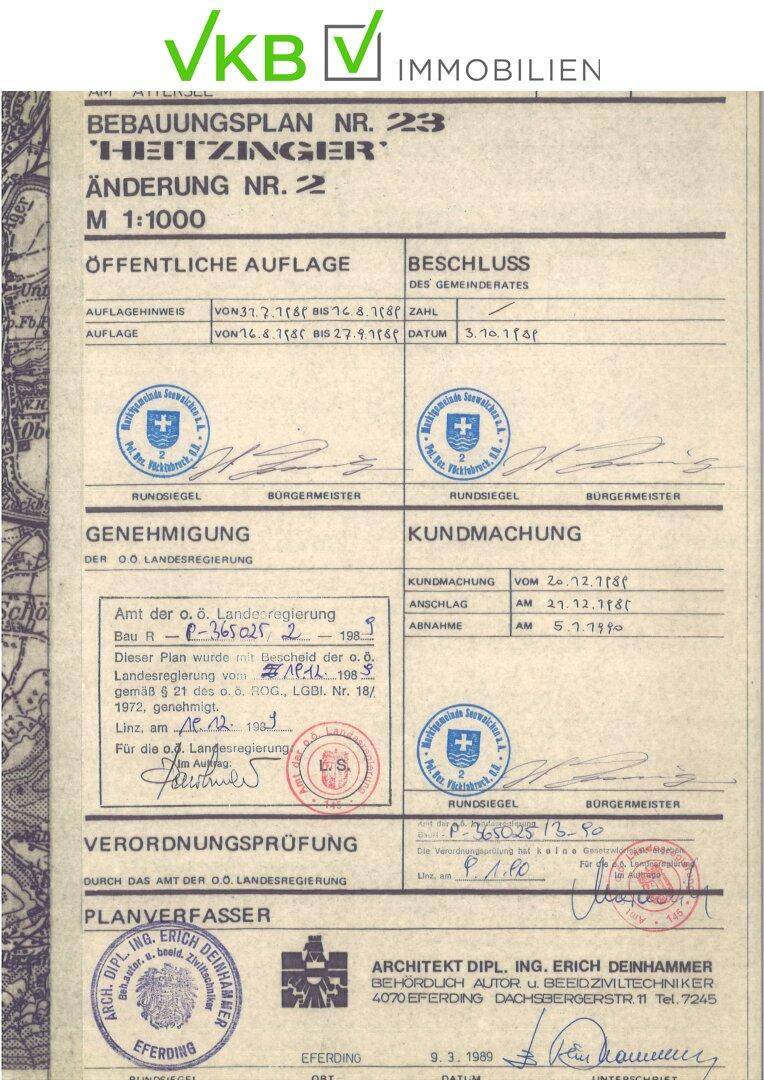 VKB IMMOBILIEN
AM ATTERSEE
BEBAUUNGSPLAN NR. 23
'HEITZINGER'
ÄNDERUNG NR. 2
M 1:1000
ÖFFENTLICHE AUFLAGE
AUFLAGEHINWEIS VON 31.7.1989 BIS 16.8.1989
AUFLAGE VON 16.8.1989 BIS 27.9.1989
BESCHLUSS
DES GEMEINDERATES
ZAHL /
DATUM 3.10.1989
Marktgemeinde Seewalchen a.A.
Pol. Bez. Vöcklabruck, O.Ö.
2
RUNDSIEGEL BÜRGERMEISTER
Marktgemeinde Seewalchen a.A.
Pol. Bez. Vöcklabruck, O.Ö.
2
RUNDSIEGEL BÜRGERMEISTER
GENEHMIGUNG
DER O.Ö. LANDESREGIERUNG
Amt der o. ö. Landesregierung
Bau R — P-365025/2 — 1989
Dieser Plan wurde mit Bescheid der o. ö.
Landesregierung vom 19.12. 1989
gemäß § 21 des o. ö. ROG., LGBl. Nr. 18/
1972, genehmigt.
Linz, am 19.12. 1989
Für die o.ö. Landesregierung:
Im Auftrag:
Amt der o.ö. Landesregierung
L. S.
145
KUNDMACHUNG
KUNDMACHUNG VOM 20.12.1989
ANSCHLAG AM 21.12.1989
ABNAHME AM 5.1.1990
Marktgemeinde Seewalchen a.A.
Pol. Bez. Vöcklabruck, O.Ö.
2
RUNDSIEGEL BÜRGERMEISTER
VERORDNUNGSPRÜFUNG
DURCH DAS AMT DER O.Ö. LANDESREGIERUNG
Amt der o.ö. Landesregierung
BauR - P-365025/3-90
Die Verordnungsprüfung hat keine Gesetzwidrigkeit ergeben.
Linz, am 9.1.90
Für die o.ö. Landesregierung
Im Auftrage
145
PLANVERFASSER
ARCH. DIPL. ING. ERICH DEINHAMMER
Beh. autor. u. beeid. Ziviltechniker
EFERDING
ARCHITEKT DIPL. ING. ERICH DEINHAMMER
BEHÖRDLICH AUTOR. u. BEEID. ZIVILTECHNIKER
4070 EFERDING DACHSBERGERSTR. 11 Tel. 7245
EFERDING 9. 3. 1989
RUNDSIEGEL ORT DATUM UNTERSCHRIFT